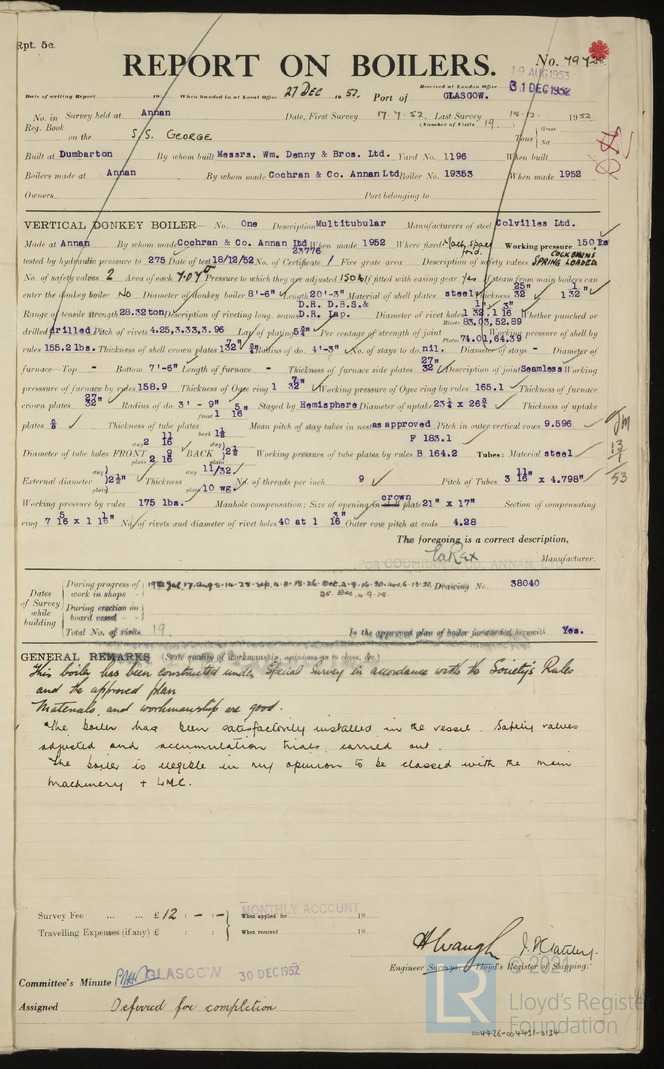 Rpt. 5c.
REPORT ON BOILERS.
No. 7972
19 AUG 1953
Received at London Office
31 DEC 1952
Date of writing Report 19 When handed in at Local Office 27 DEC 1952. Port of GLASGOW.
No. in Survey held at Annan Date, First Survey 17.7.52. Last Survey 18.12. 1952
Reg. Book
(Number of Visits 19.)
on the S/S. GEORGE Tons { Gross Net
Built at Dumbarton By whom built Messrs. Wm. Denny & Bros. Ltd. Yard No. 1196 When built
Boilers made at Annan By whom made Cochran & Co. Annan Ltd Boiler No. 19353 When made 1952
Owners Port belonging to
VERTICAL DONKEY BOILER— No. One Description Multitubular Manufacturers of steel Colvilles Ltd.
Made at Annan By whom made Cochran & Co. Annan Ltd When made 1952 Where fixed Working pressure 150 lbs
23776
COCKBURNS
tested by hydraulic pressure to 275 Date of test 18/12/52 No. of Certificate 1 Fire grate area Description of safety valves SPRING LOADED
No. of safety valves 2 Area of each 7.07 Pressure to which they are adjusted 150 lb If fitted with easing gear Yes If steam from main boilers can
enter the donkey boiler No Diameter of donkey boiler 8'-6" Length 20'-3" Material of shell plates steel Thickness 25/32" 1 1/32"
D.R. D.B.S.&
Range of tensile strength 28.32 ton Description of riveting long. seams D.R. Lap. Diameter of rivet holes Whether punched or
83.03, 52.89
drilled drilled Pitch of rivets 4.25, 3.33, 3.96 Lap of plating Per centage of strength of joint Working pressure of shell by
Plate 74.01, 64.39
rules 155.2 lbs. Thickness of shell crown plates 1 7/32" Radius of do. 4'-3" No. of stays to do. nil. Diameter of stays - Diameter of
furnace—Top - Bottom 7'-6" Length of furnace - Thickness of furnace side plates 27/32" Description of joint Seamless Working
presssure of furnace by rules 158.9 Thickness of Ogee ring 1 7/32" Working pressure of Ogee ring by rules 165.1 Thickness of furnace
crown plates 27/32" Radius of do. 3' - 9" Stayed by Hemisphere Diameter of uptake 23¼ x 26¾ Thickness of uptake
plates ⅝ Thickness of tube plates front 1 5/16 back 1⅛ Mean pitch of stay tubes in nest as approved Pitch in outer vertical rows 9.596
F 183.1
Diameter of tube holes FRONT stay 2 11/16 plain 2 9/16 BACK stay plain 2½ Working pressure of tube plates by rules B 164.2 Tubes: Material steel
External diameter stay plain 2½" Thickness stay 11/32 plain 10 wg. No. of threads per inch 9 Pitch of Tubes 3 11/16" x 4.798"
Working pressure by rules 175 lbs. Manhole compensation; Size of opening in crown shell plate 21" x 17" Section of compensating
ring 7 5/16 x 1 1/16" No. of rivets and diameter of rivet holes 40 at 1 3/16" Outer row pitch at ends 4.28
The foregoing is a correct description,
FOR COCHRAN & CO. ANNAN, LTD
Manufacturer.
Dates of Survey while building
During progress of work in shops - Drawing No. 38040
During erection on board vessel - -
Total No. of visits 19. Is the approved plan of boiler forwarded herewith Yes.
GENERAL REMARKS (State quality of workmanship, opinions as to class, &c.)
This boiler has been constructed under Special Survey in accordance with the Society's Rules
and the approved plan
Materials and workmanship are good.
The boiler has been satisfactorily installed in the vessel. Safety valves
adjusted and accumulation trials carried out.
The boiler is eligible in my opinion to be classed with the main
machinery + LMC.
Survey Fee ... ... £12 : - : -
MONTHLY ACCOUNT
When applied for 19
Travelling Expenses (if any) £ : : When received 19
Engineer Surveyor to Lloyd's Register of Shipping.
Committee's Minute GLASGOW 30 DEC 1952
Assigned Deferred for completion
13/1/53
© 2021
LR
Lloyd's Register
Foundation
004426-004451-0134